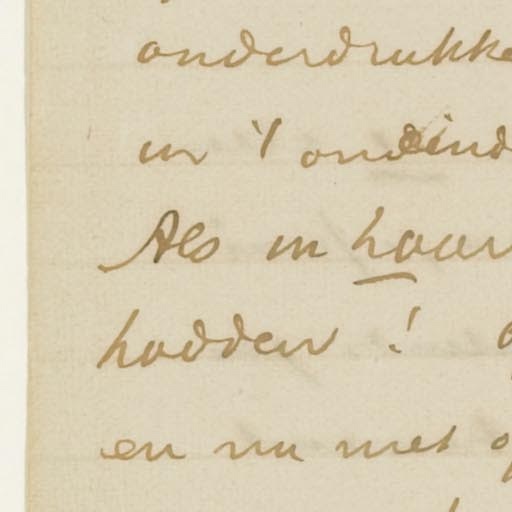 onderdrukke
in 't oneind
Als in haar
hadden !
en nu met